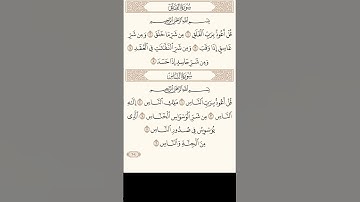 سُورَةُ الفَلَقِ
بِسْمِ اللَّهِ الرَّحْمَٰنِ الرَّحِيمِ
قُلْ أَعُوذُ بِرَبِّ الْفَلَقِ ١ مِن شَرِّ مَا خَلَقَ ٢ وَمِن شَرِّ
غَاسِقٍ إِذَا وَقَبَ ٣ وَمِن شَرِّ النَّفَّاثَاتِ فِي الْعُقَدِ ٤
وَمِن شَرِّ حَاسِدٍ إِذَا حَسَدَ ٥
سُورَةُ النَّاسِ
بِسْمِ اللَّهِ الرَّحْمَٰنِ الرَّحِيمِ
قُلْ أَعُوذُ بِرَبِّ النَّاسِ ١ مَلِكِ النَّاسِ ٢ إِلَٰهِ
النَّاسِ ٣ مِن شَرِّ الْوَسْوَاسِ الْخَنَّاسِ ٤ الَّذِي
يُوَسْوِسُ فِي صُدُورِ النَّاسِ ٥
مِنَ الْجِنَّةِ وَالنَّاسِ ٦